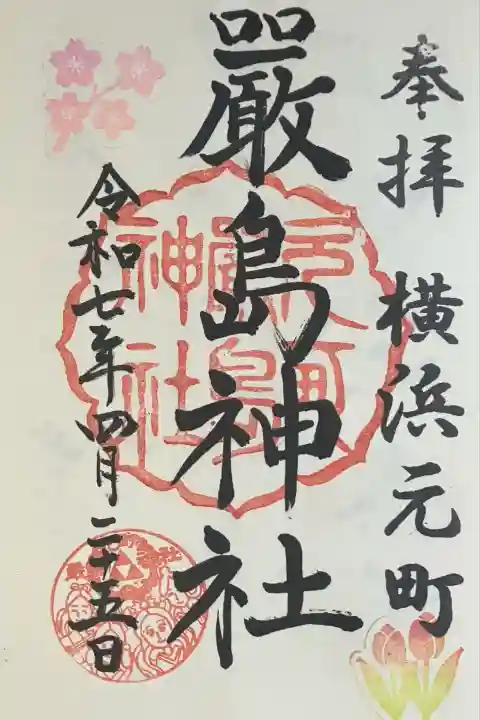 奉拝 横浜元町
厳島神社
令和七年四月二十五日
元町
厳島
神社